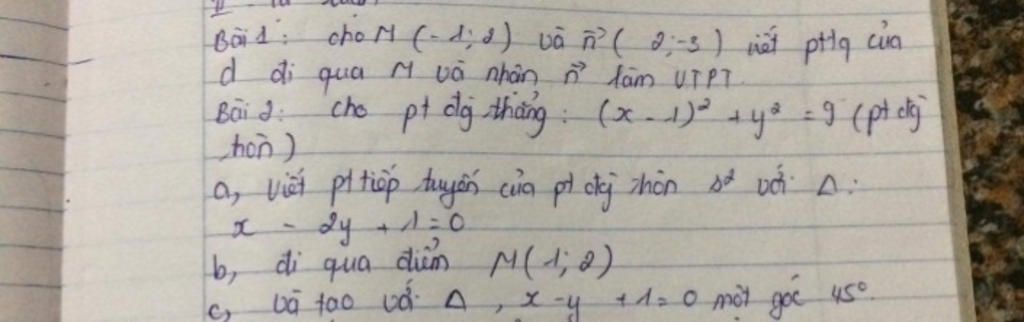 Bài 1: cho M (-1; 2) và n⃗ ( 2; -3 ) viết pttq của
d đi qua M và nhận n⃗ làm VTPT.
Bài 2: cho pt đg thẳng : (x - 1)² + y² = 9 (pt đg
hòn)
a, viết pt tiếp tuyến của pt đg thòn s² với Δ:
x - 2y + 1 = 0
b, đi qua điểm M(1; 2)
c, và tạo với Δ, x - y + 1 = 0 một góc 45°.